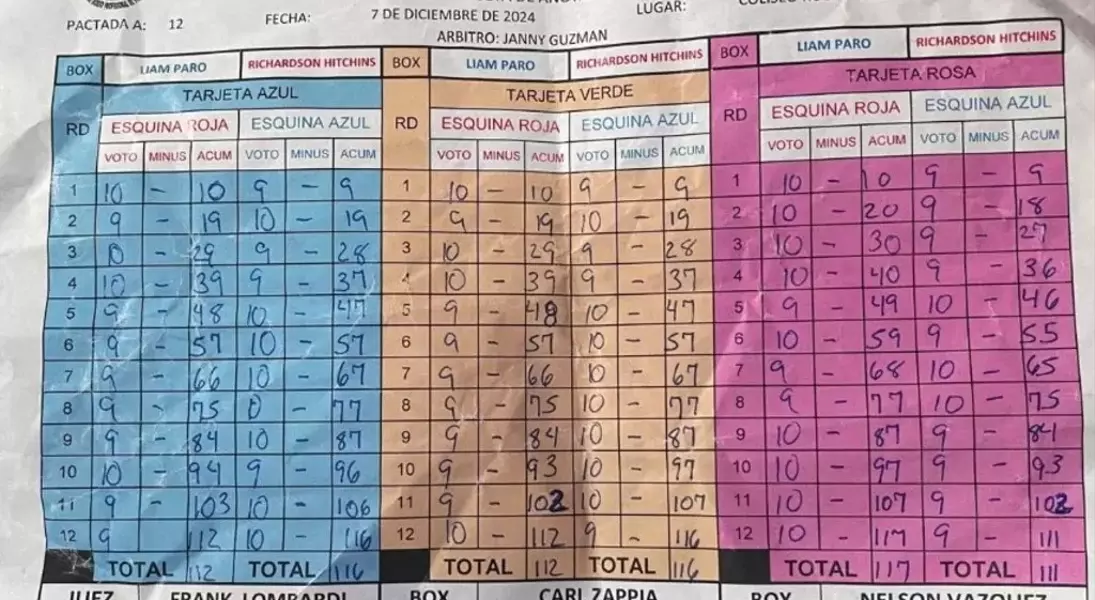 PACTADA A: 12 FECHA: 7 DE DICIEMBRE DE 2024 LUGAR:
ARBITRO: JANNY GUZMAN
BOX LIAM PARO RICHARDSON HITCHINS BOX LIAM PARO RICHARDSON HITCHINS BOX LIAM PARO RICHARDSON HITCHINS
TARJETA AZUL TARJETA VERDE TARJETA ROSA
RD ESQUINA ROJA ESQUINA AZUL RD ESQUINA ROJA ESQUINA AZUL RD ESQUINA ROJA ESQUINA AZUL
VOTO MINUS ACUM VOTO MINUS ACUM VOTO MINUS ACUM VOTO MINUS ACUM VOTO MINUS ACUM VOTO MINUS ACUM
1 10 - 10 9 - 9 1 10 - 10 9 - 9 1 10 - 10 9 - 9
2 9 - 19 10 - 19 2 9 - 19 10 - 19 2 10 - 20 9 - 18
3 10 - 29 9 - 28 3 10 - 29 9 - 28 3 10 - 30 9 - 27
4 10 - 39 9 - 37 4 10 - 39 9 - 37 4 10 - 40 9 - 36
5 9 - 48 10 - 47 5 9 - 48 10 - 47 5 9 - 49 10 - 46
6 9 - 57 10 - 57 6 9 - 57 10 - 57 6 10 - 59 9 - 55
7 9 - 66 10 - 67 7 9 - 66 10 - 67 7 9 - 68 10 - 65
8 9 - 75 10 - 77 8 9 - 75 10 - 77 8 9 - 77 10 - 75
9 9 - 84 10 - 87 9 9 - 84 10 - 87 9 10 - 87 9 - 84
10 10 - 94 9 - 96 10 9 - 93 10 - 97 10 10 - 97 9 - 93
11 9 - 103 10 - 106 11 9 - 102 10 - 107 11 10 - 107 9 - 102
12 9 112 10 - 116 12 10 - 112 9 - 116 12 10 - 117 9 - 111
TOTAL 112 TOTAL 116 TOTAL 112 TOTAL 116 TOTAL 117 TOTAL 111
JUEZ FRANK LOMBARDI BOX CARL ZAPPIA BOX NELSON VAZQUEZ